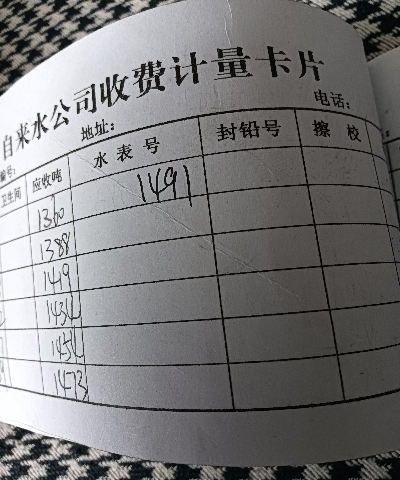 自来水公司收费计量卡片
编号: 地址: 电话:
卫生间 应收吨 水表号 封铅号 擦校
1360 1491
1388
1419
1434
1454
1473